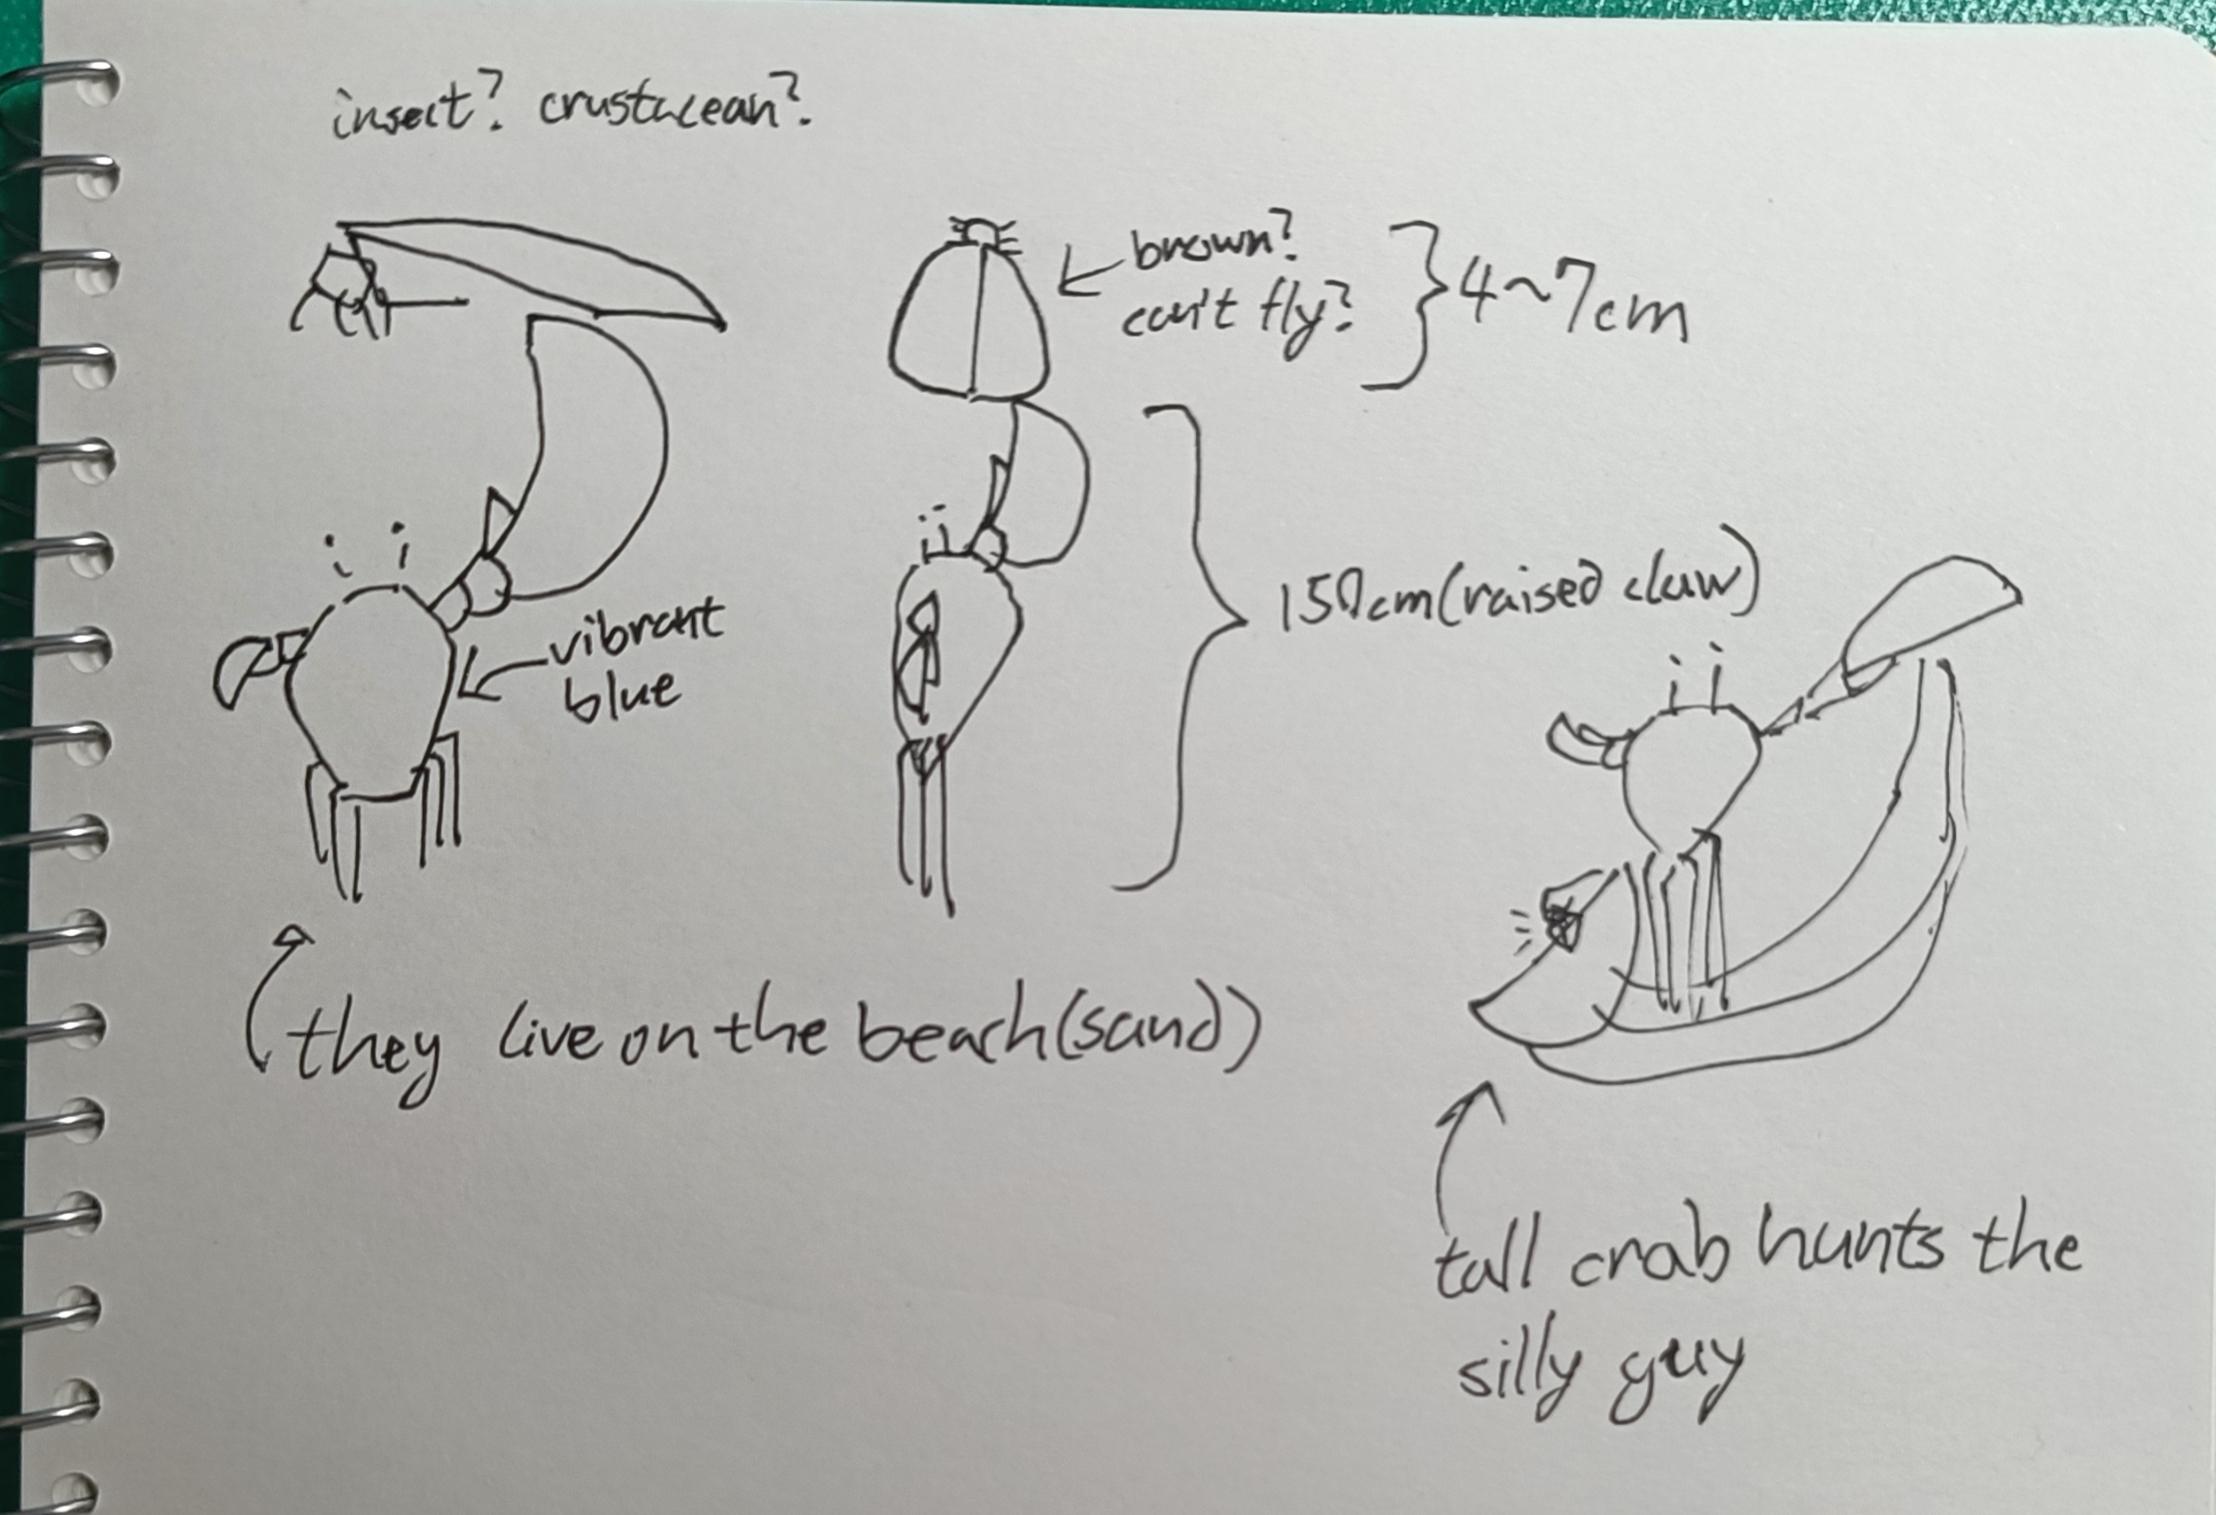 insect? crustacean?
brown?
can't fly?
4~7cm
150cm(raised claw)
vibrant
blue
they live on the beach(sand)
tall crab hunts the
silly guy